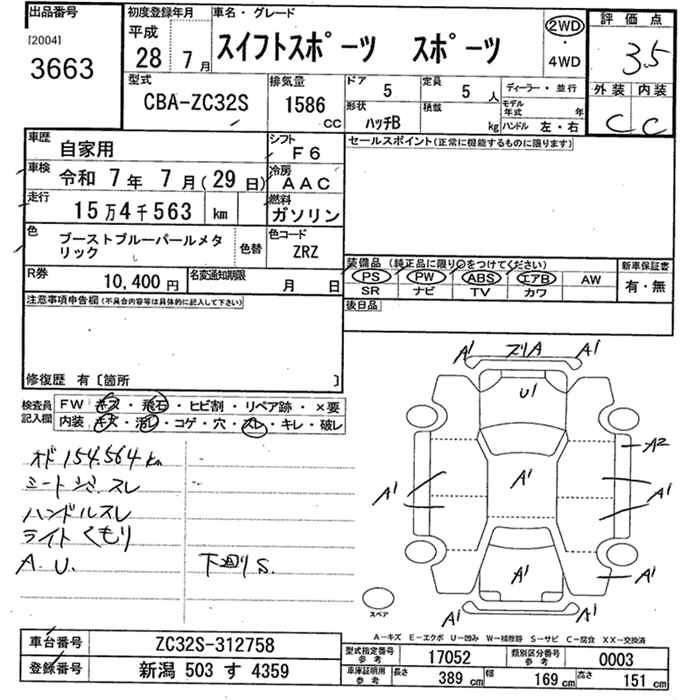 出品番号
[2004]
3663
初度登録年月
平成
28年 7月
車名・グレード
スイフトスポーツ スポーツ
2WD
・
4WD
評価点
3.5
外装 内装
C C
型式
CBA-ZC32S
排気量
1586
CC
ドア
5
定員
5 人
形状
ハッチB
積載
kg
ディーラー・並行
モデル年式 年
ハンドル 左・右
車歴
自家用
シフト
F6
車検
令和 7年 7月(29日)
冷房
AAC
走行
15万4千563 km
燃料
ガソリン
色
ブーストブルーパールメタ
リック
色替
色コード
ZRZ
R券
10,400円
名変通知期限
月 日
セールスポイント(正常に機能するものに限ります)
装備品(純正品に限り○をつけてください)
PS PW ABS エアB AW
SR ナビ TV カワ
新車保証書
有・無
後日品
注意事項申告欄(不具合内容等は具体的に記入して下さい)
修復歴 有〔箇所 〕
検査員
記入欄
FW キズ・飛石・ヒビ割・リペア跡・×要
内装 キズ・汚レ・コゲ・穴・スレ・キレ・破レ
オド 154,564 km
シートシミ スレ
ハンドルスレ
ライトくもり
A.U.
下廻りS.
A1 スリA A1
U1
A2
A1
A1
A1
A1
A1
A1
スペア
A-キズ E-エクボ U-凹み W-補修跡 S-サビ C-腐食 XX-交換済
車台番号
ZC32S-312758
登録番号
新潟 503 す 4359
型式指定番号
参考
17052
類別区分番号
参考
0003
車庫証明用
参考
長さ
389 cm
幅
169 cm
高さ
151 cm